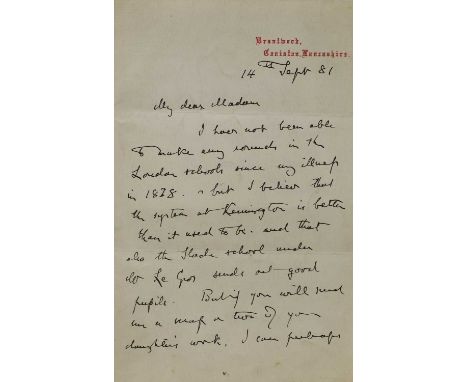 Brantwood,
Coniston, Lancashire.
14th Sept 81
My dear Madam
I have not been able
to make any rounds in the
London schools since my illness
in 1878. but I believe that
the system at Kennington is better
than it used to be. and that
also the Slade school under
Le Gros sends out good
pupils. But if you will send
me a scrap or two of your
daughter's work. I can perhaps